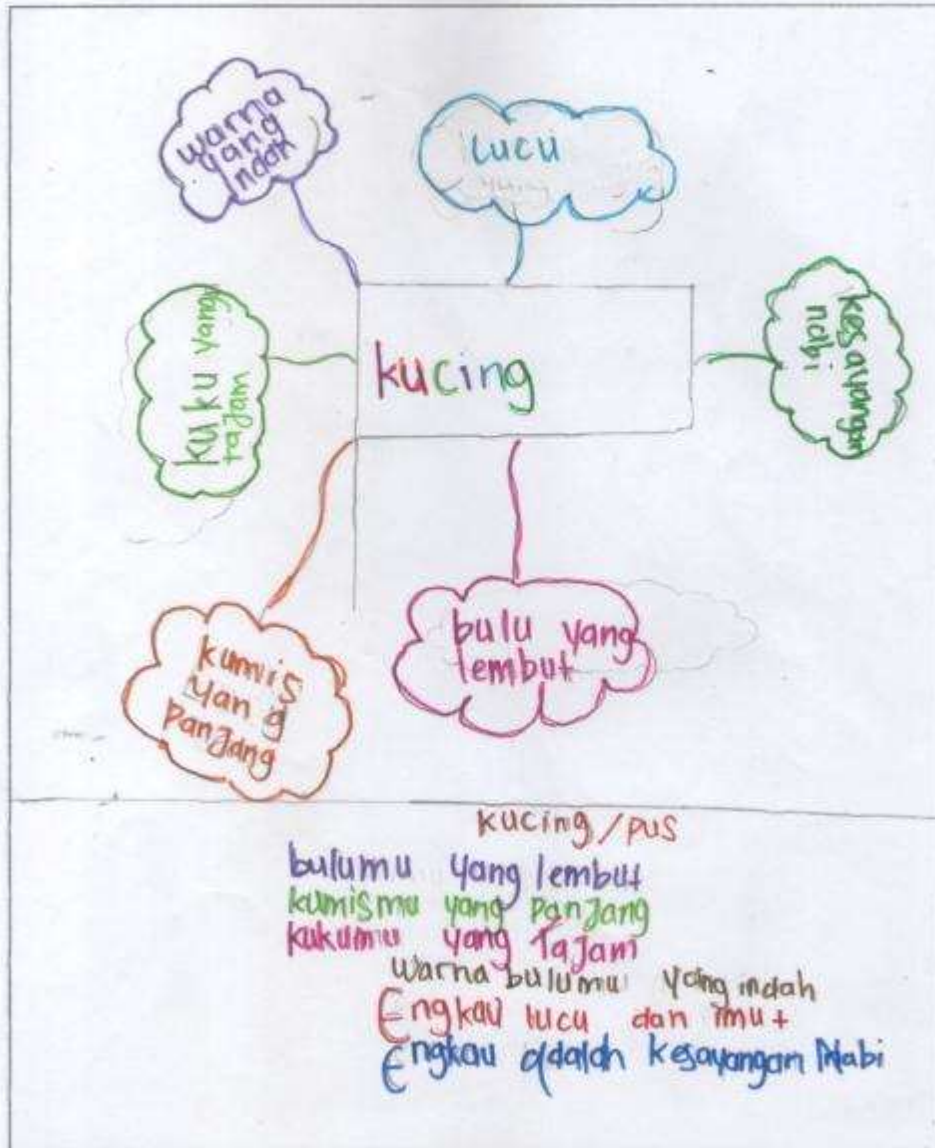 warna
yang
ndah
lucu
kuku yang
tajam
kucing
kesayangan
nabi
kumis
yang
panjang
bulu yang
lembut
kucing/pus
bulumu yang lembut
kumismu yang panjang
kukumu yang Tajam
warna bulumu yang indah
Engkau lucu dan imut
Engkau adalah kesayangan Nabi